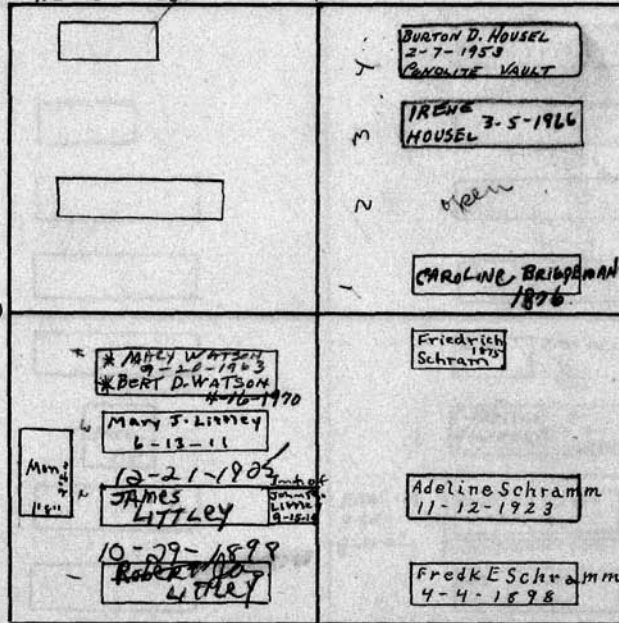 4
BURTON D. HOUSEL
2-7-1953
CONOLITE VAULT
3
IRENE
HOUSEL 3-5-1966
2
open
1
CAROLINE BRIDGEMAN
1876
* MARY WATSON
9-20-1963
* BERT D. WATSON
4-16-1970
Mary J. Littley
6-13-11
Mon.
12-21-1905
JAMES
LITTLEY
Inf of
Littley
10-29-1898
Robert
LITTLEY
Friedrich
1875
Schram
Adeline Schramm
11-12-1923
Fredk E Schramm
4-4-1898